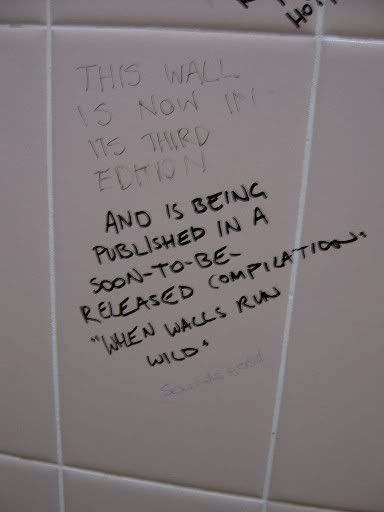 HOT
THIS WALL
IS NOW IN
ITS THIRD
EDITION
AND IS BEING
PUBLISHED IN A
SOON-TO-BE-
RELEASED COMPILATION:
"WHEN WALLS RUN
WILD"